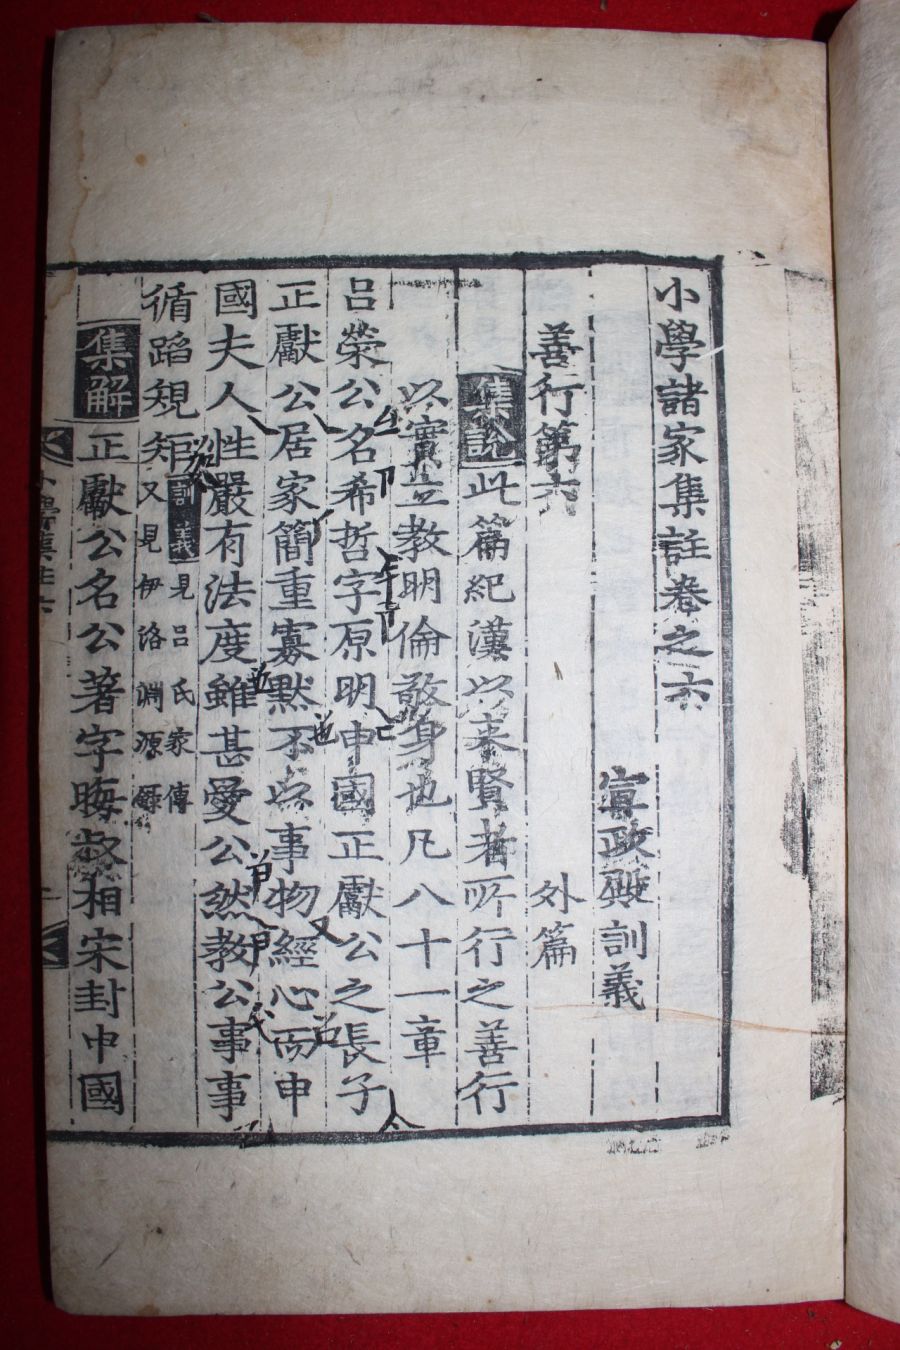 小學諸家集註卷之六
宣政殿訓義
善行第六 外篇
集說 此篇紀漢以來賢者所行之善行
以實立教明倫敬身也凡八十一章
呂榮公名希哲字原明申國正獻公之長子
正獻公居家簡重寡默不以事物經心而申
國夫人性嚴有法度雖甚愛公然教公事事
循蹈規矩 訓義 見呂氏家傳
又見伊洛淵源錄
集解 正獻公名公著字晦叔相宋封申國
小學集註六